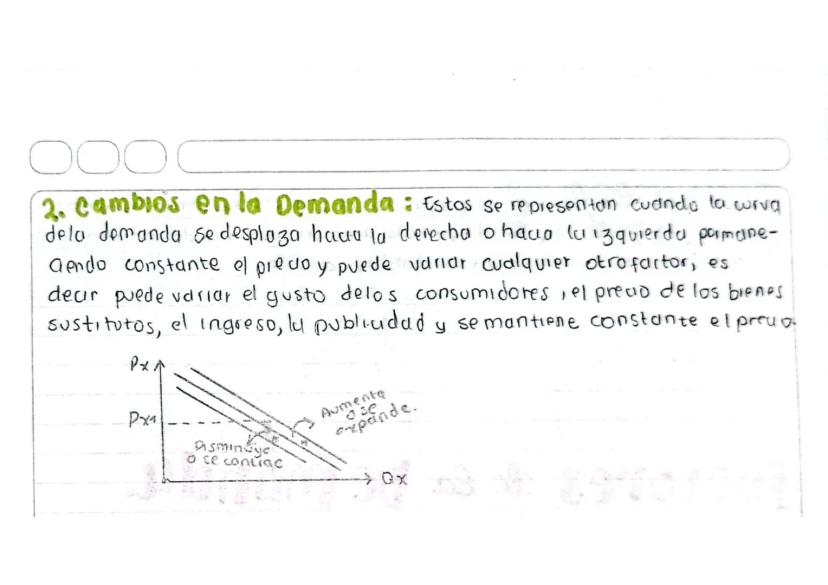 2. Cambios en la Demanda: Estos se representan cuando la curva
de la demanda se desplaza hacia la derecha o hacia la izquierda permane-
ciendo constante el precio y puede variar cualquier otro factor, es
decir puede variar el gusto de los consumidores, el precio de los bienes
sustitutos, el ingreso, la publicidad y se mantiene constante el precio.
Px
Px1
Aumenta
o se
expande.
Disminuye
o se contrae
Qx